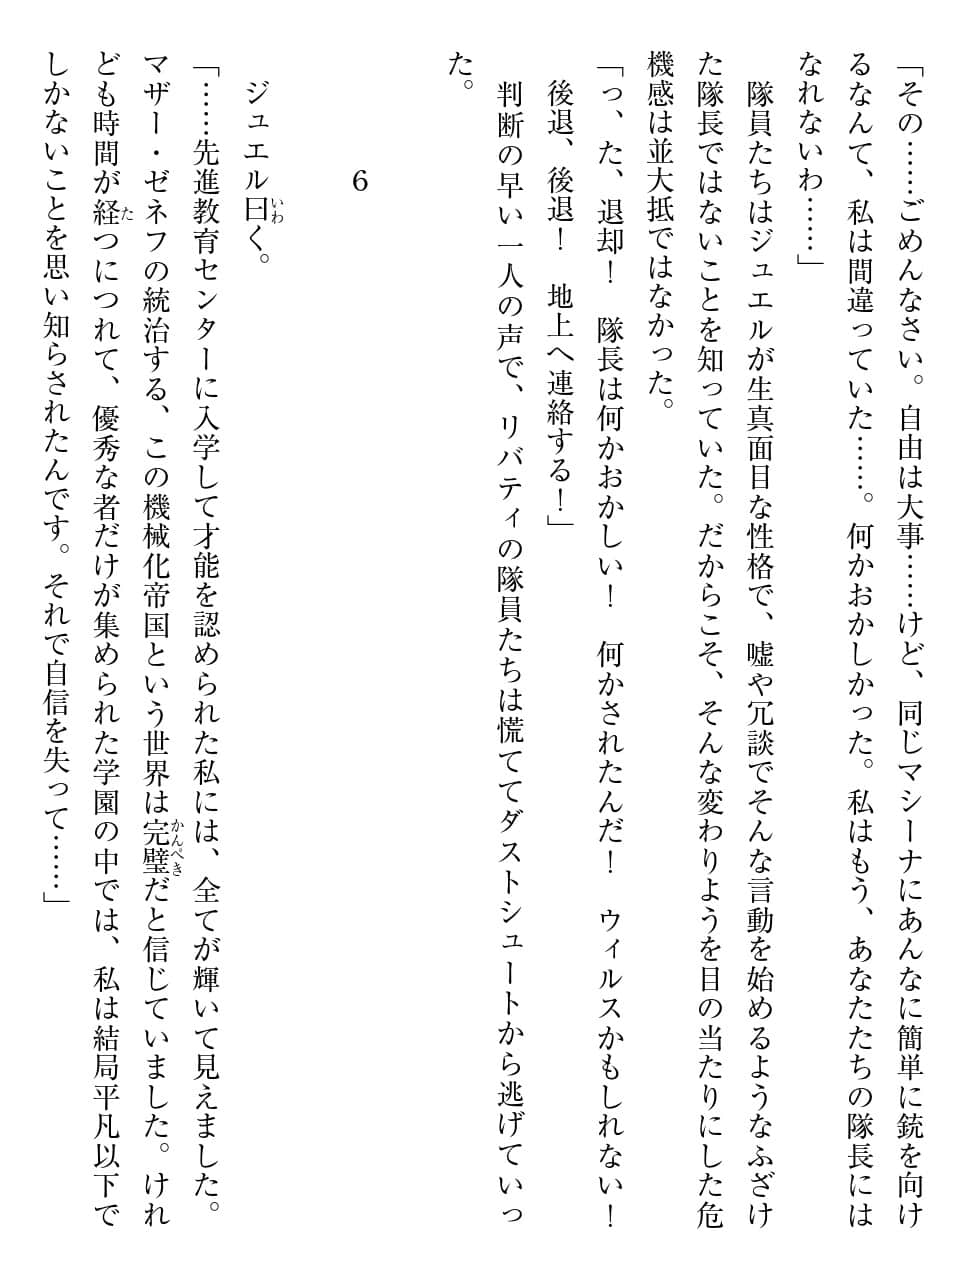 「その……ごめんなさい。自由は大事……けど、同じマシーナにあんなに簡単に銃を向け
るなんて、私は間違っていた……。何かおかしかった。私はもう、あなたたちの隊長には
なれないわ……」
隊員たちはジュエルが生真面目な性格で、嘘や冗談でそんな言動を始めるようなふざけ
た隊長ではないことを知っていた。だからこそ、そんな変わりようを目の当たりにした危
機感は並大抵ではなかった。
「っ、た、退却！　隊長は何かおかしい！　何かされたんだ！　ウィルスかもしれない！
後退、後退！　地上へ連絡する！」
判断の早い一人の声で、リバティの隊員たちは慌ててダストシュートから逃げていっ
た。
6
ジュエル曰く。
いわ
「……先進教育センターに入学して才能を認められた私には、全てが輝いて見えました。
マザー・ゼネフの統治する、この機械化帝国という世界は完璧だと信じていました。けれ
かんぺき
ども時間が経つにつれて、優秀な者だけが集められた学園の中では、私は結局平凡以下で
た
しかないことを思い知らされたんです。それで自信を失って……」